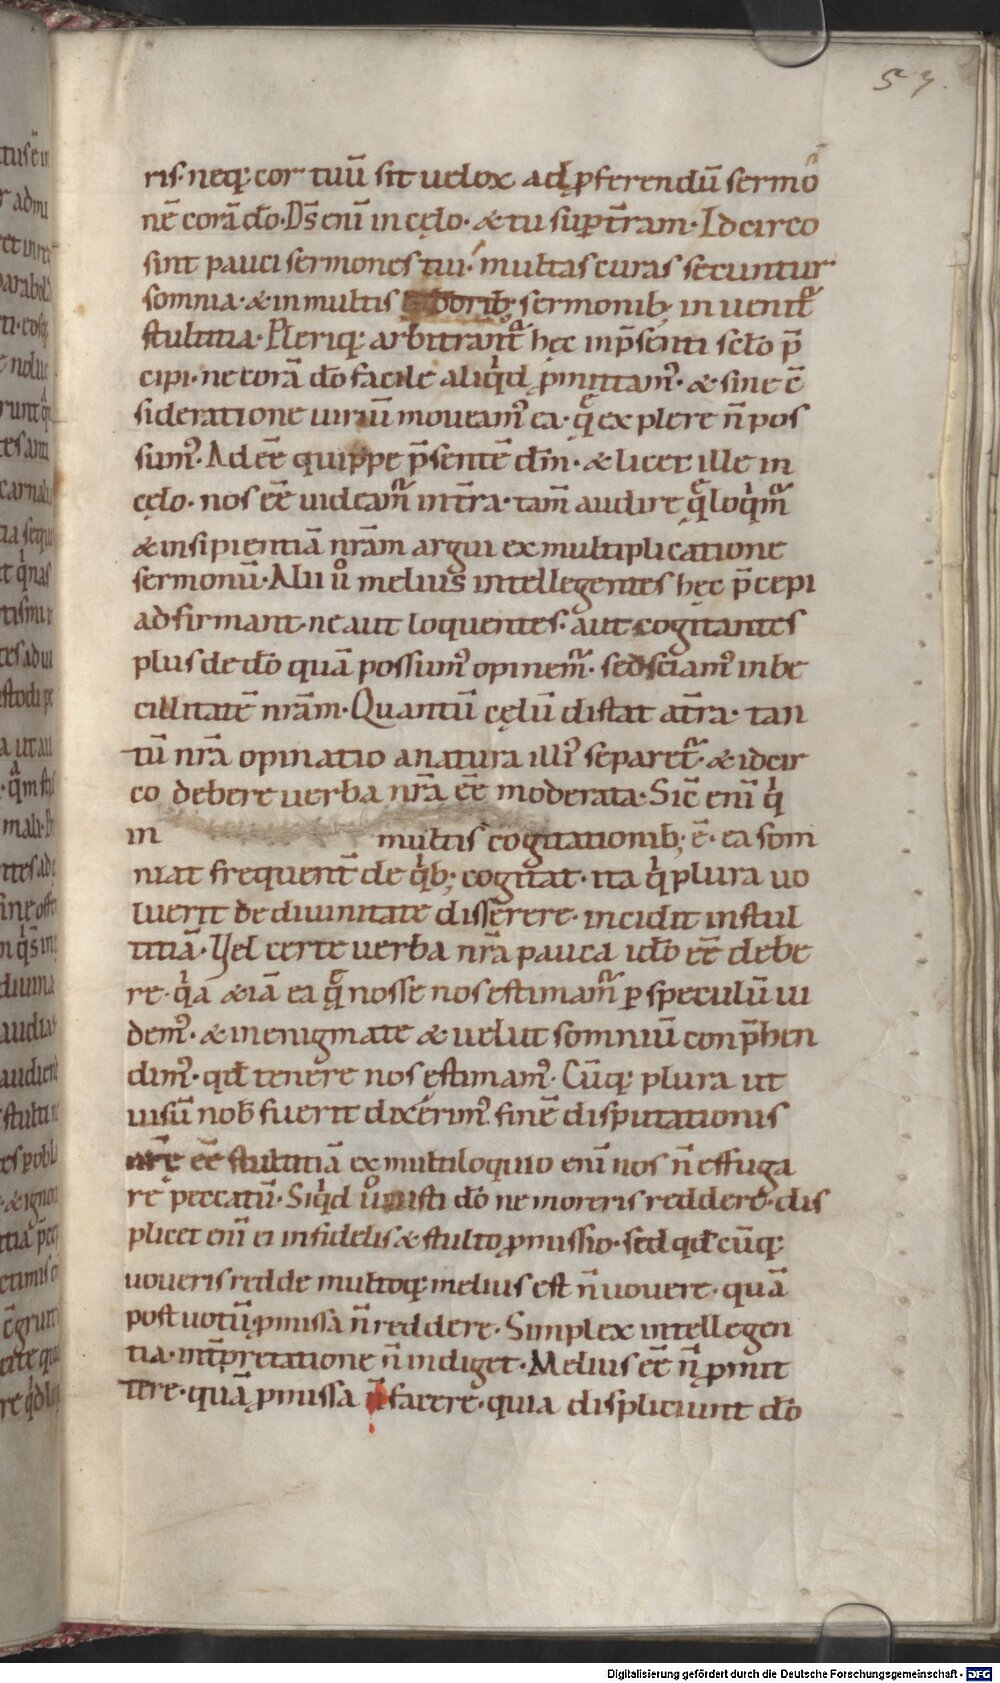 57.
ris· neq; cor tuū sit uelox ad ꝓferendū sermō
nē corā dō· Ds̄ enī in cęlo· & tu suꝑ tr̄am· Idcirco
sint pauci sermones tui· multas curas secuntur
somnia· & in multis sermonib; inuenit᷑
stultitia· Pleriq; arbitrant᷑ hęc in p̄senti sc̄lo p̄
cipi· ne corā dō facile aliqͥd ꝓmittam᷒· & sine c̄
sideratione uiriū moueam᷒ ea· q̄ explere n̄ pos
sum᷒· Adeē quippe p̄sentē dn̄m· & licet ille in
cęlo· nos eē uideam᷑ in tr̄a· tam̄ audire q̄ loqͥm᷑
& insipientiā nr̄am argui ex multiplicatione
sermonū· Alii u᷒o melius intellegentes hęc p̄cepi
adfirmant· ne aut loquentes· aut cogitantes
plus de dō quā possum᷒ opinem᷑· sed sciam᷒ inbe
cillitatē nr̄am· Quantū cęlū distat a tr̄a· tan
tū nr̄a opinatio a natura illi᷒ separet᷑· & idcir
co debere uerba nr̄a eē moderata· Sic̄ enī qͥ
in multis cogitationib; ē· ea som
niat frequent̄ de qͥb; cogitat· ita qͥ plura uo
luerit de diuinitate disserere· incidit in stul
titiā· Vel certe uerba nr̄a pauca idō eē debe
re· qͥa &iā ea q̄ nosse nos estimam᷑ ꝑ speculū ui
dem᷒· & in enigmate & uelut somniū conp̄hen
dim᷒· qd̄ tenere nos ęstimam᷒· Cūq; plura ut
uisū nob̄ fuerit dixerim᷒· finē disputationis
nr̄e eē stultitiā ex multiloquio enī nos n̄ effuga
re peccatū· Siqͥd uouisti dō ne moreris reddere· dis
plicet enī ei infidelis & stulto ꝓmissio· sed qd̄cūq;
uoueris redde multoq; melius est n̄ uouere· quā
post uotū ꝓmissa n̄ reddere· Simplex intellegen
tia· int̄pretatione n̄ indiget· Melius eē n̄ ꝓmit
tere· quā ꝓmissa n̄ facere· quia displiciunt dō
Digitalisierung gefördert durch die Deutsche Forschungsgemeinschaft - DFG